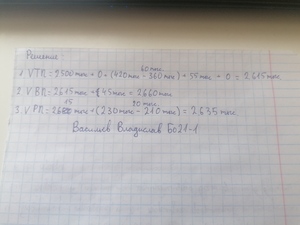 Решение
60 тыс
1. VТП = 2500 тыс + 0 + (420 тыс - 360 тыс) + 55 тыс + 0 = 2615 тыс.
2. VВП = 2615 тыс + 45 тыс = 2660 тыс.
15 20 тыс
3. VРП = 2600 тыс + (230 тыс - 210 тыс) = 2635 тыс.
Василев Владислав Бо21-1